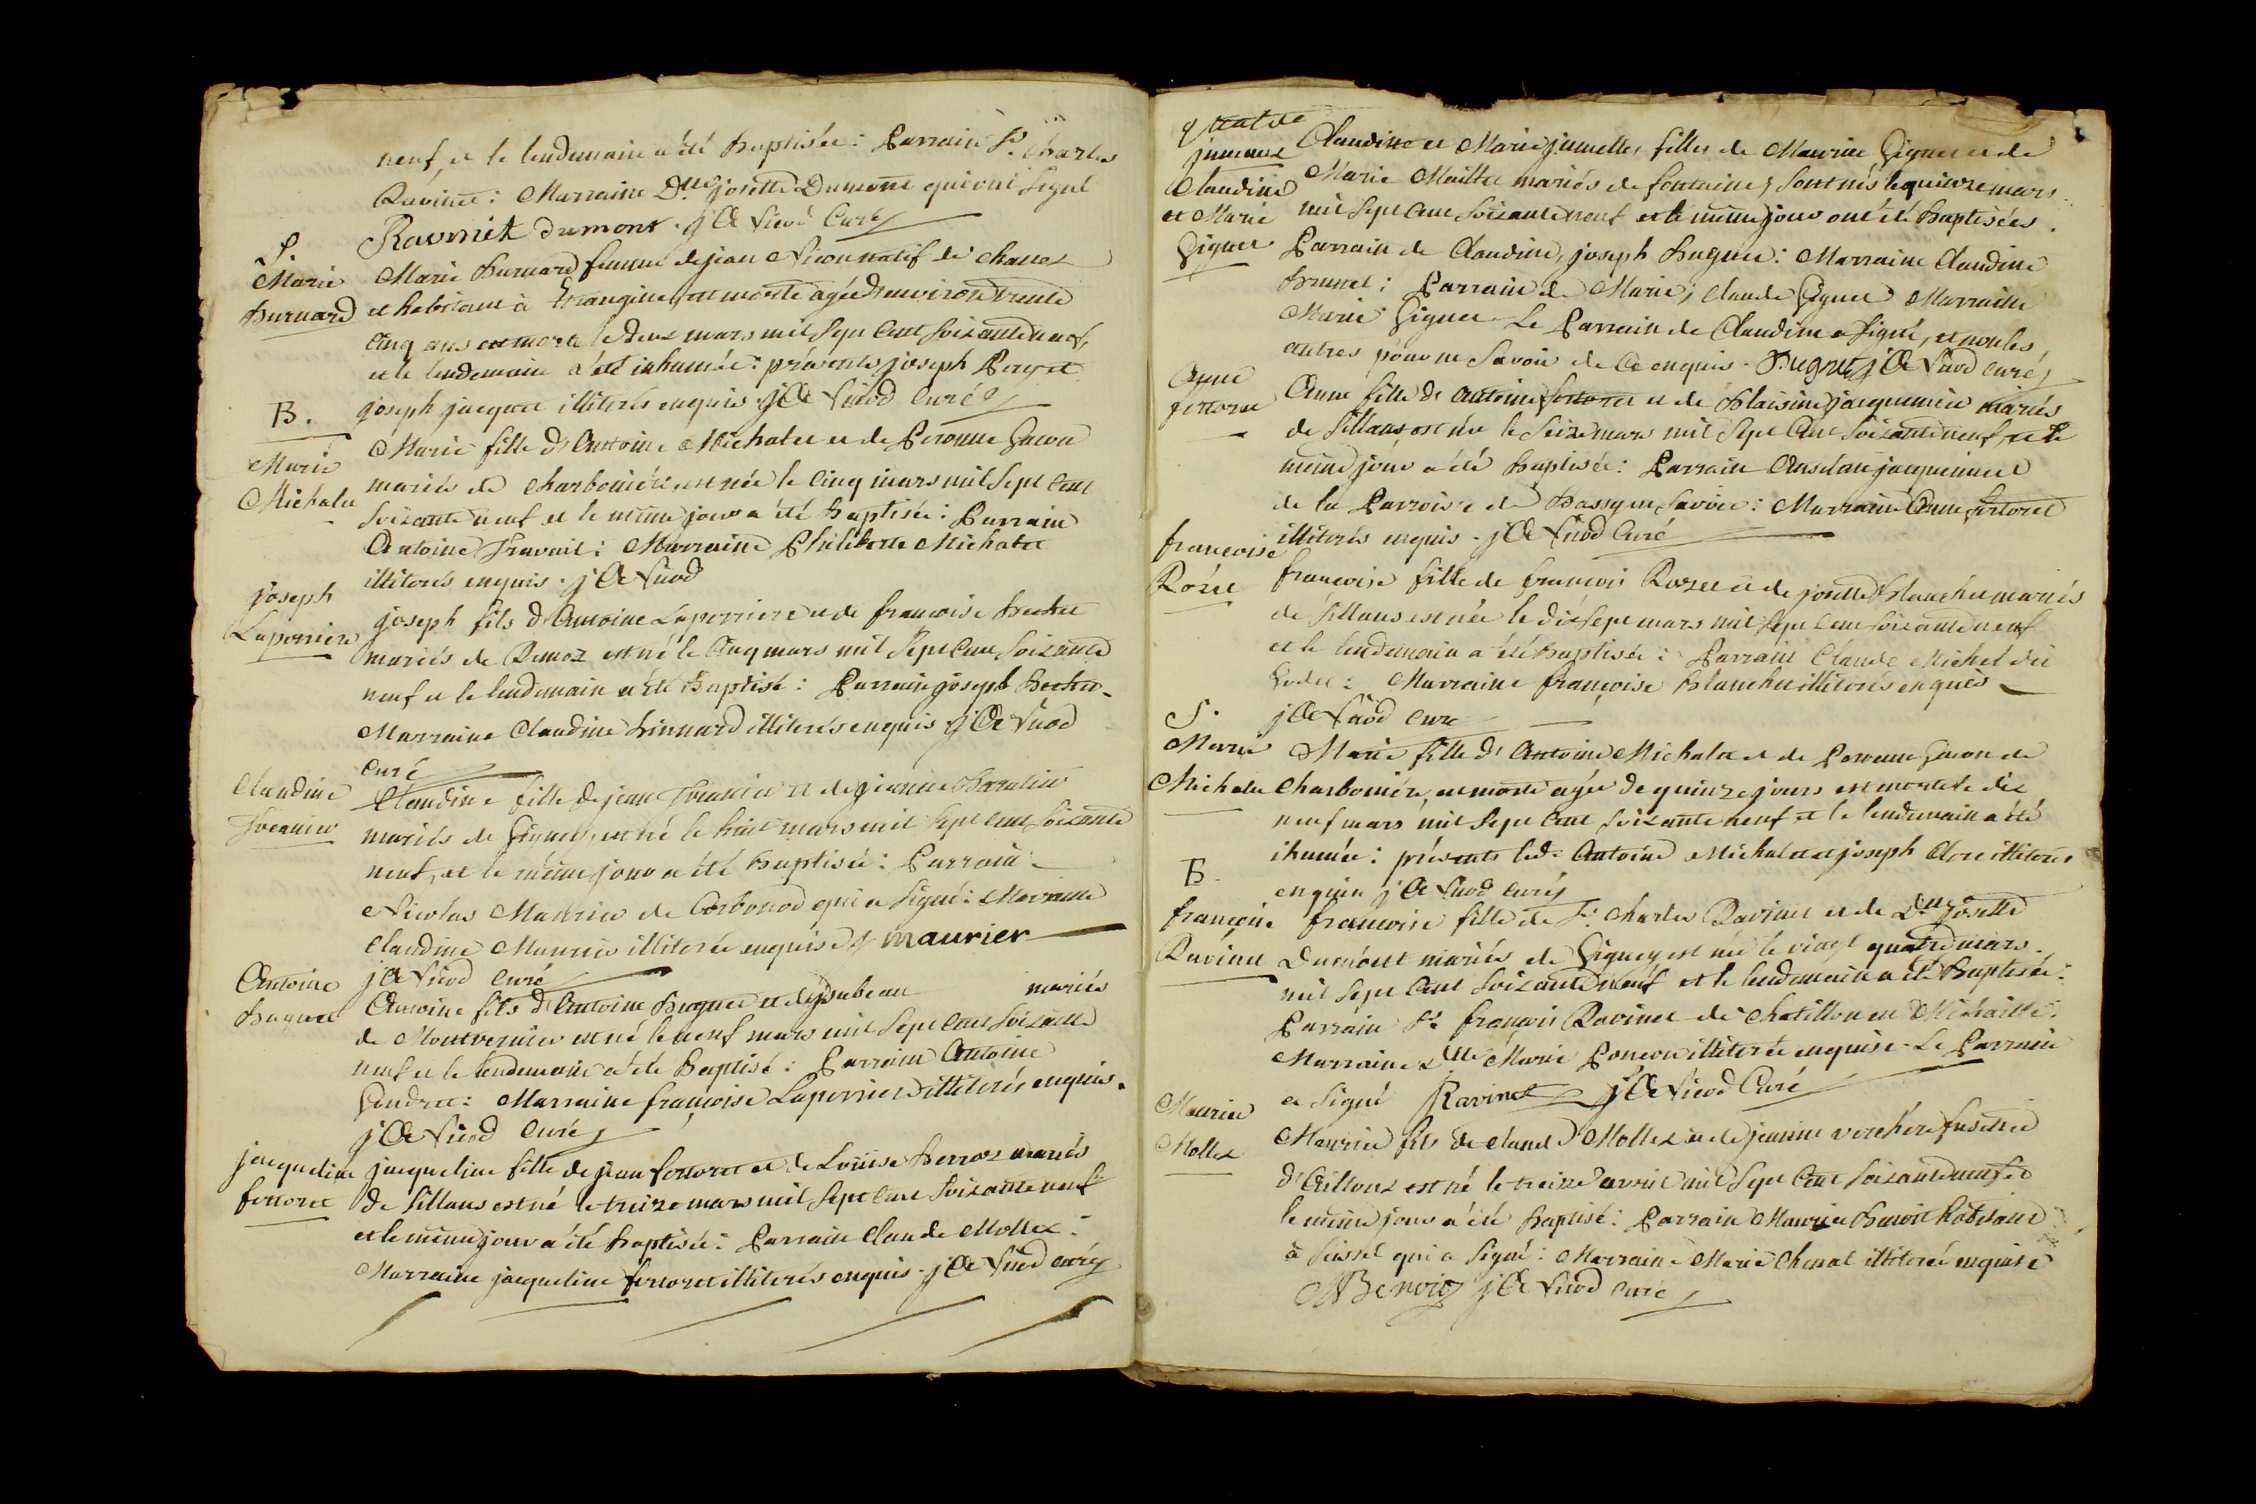 neuf, et le lendemain a été Baptisée: Parrain Sr. Charles
Ravinet: Marraine Dlle josette Dumont qui ont Signé
Ravinet dumont. j C Curé
S.
Marie
Burnard
Marie Burnard femme de jean natif de
et habitant à est morte agée d'environ trente
Cinq ans est morte le deux mars mil Sept Cent Soixante neuf,
et le lendemain a été inhumée: présents joseph
joseph jacquet illiterés enquis. j C Curé
B.
Marie
Michalet
Marie fille d'Antoine Michalet et de Peronne Gacon
mariés de Charboniére, est née le Cinq mars mil Sept Cent
Soixante neuf et le même jour a été Baptisée: Parrain
Antoine Travail: Marraine Philiberte Michalet
illiterés enquis. j C
joseph
Laperriere
joseph fils d'Antoine Laperriere et de francoise
mariés de est né le Cinq mars mil Sept Cent Soixante
neuf et le lendemain a été Baptisé: Parrain joseph
Marraine Claudine illiterés enquis j C
Curé
Claudine
Claudine fille de jean et de jeanne
mariés de est né le huit mars mil Sept Cent Soixante
neuf, et le même jour a été Baptisée: Parrain
Nicolas Maurier de Corbonod qui a Signé: Marraine
Claudine Maurier illiterée enquise maurier
j C Curé
Antoine
Huguet
Antoine fils d'Antoine Huguet et d'ysabeau mariés
de Montvernier est né le neuf mars mil Sept Cent Soixante
neuf et le lendemain a été Baptisé: Parrain Antoine
Marraine francoise Laperriere illiterés enquis.
j C Curé
jacqueline
fertoret
jacqueline fille de jean fertoret et de Loüise mariés
de Sillans est né le treize mars mil Sept Cent Soixante neuf
et le même jour a été Baptisée: Parrain Claude Mollex:
Marraine jacqueline fertoret illiterés enquis. j C curé
quatre
jumeaux
Claudine
et Marie
Giguet
Claudine et Marie jumelles filles de Maurice Giguet et de
Marie mariés de fontaine, sont nés le quinze mars
mil Sept Cent Soixante neuf et le même jour ont été Baptisées.
Parrain de Claudine, joseph Huguet: Marraine Claudine
Brunet: Parrain de Marie, Claude Giguet Marraine
Marie Giguet. Le Parrain de Claudine a Signé, et non les
autres pour ne Savoir de Ce enquis. Huguet, j C curé
Anne
fertoret
Anne fille de Antoine fertoret et de Blaisine jacquemier mariés
de Sillans est née le Seize mars mil Sept Cent Soixante neuf, et le
même jour a été Baptisée: Parrain jacquemier
de la Parroisse de Bassy en Savoie: Marraine Anne fertoret
illiterés enquis. j C Curé
francoise
Rozet
francoise fille de francois Rozet et de josette Blanchet mariés
de Sillans est née le dix Sept mars mil Sept Cent Soixante neuf
et le lendemain a été Baptisée: Parrain Claude Michel dit
Godet: Marraine françoise Blanchet illiterés enquis
j C Curé
S.
Marie
Michalet
Marie fille d'Antoine Michalet et de Peronne Gacon de
Charboniére, est morte agée de quinze jours est morte le dix
neuf mars mil Sept Cent Soixante neuf et le lendemain a été
ihumée: présents led. Antoine Michalet et joseph illiterés
enquis j C curé
B.
françoise
Ravinet
francoise fille de Sr. Charles Ravinet et de Dlle josette
Dumont mariés de est née le vingt quatre mars
mil Sept Cent Soixante neuf et le lendemain a été Baptisée:
Parrain Sr. françois Ravinet de Chatillon en Michaille:
Marraine Dlle Marie Poncet illiterée enquise. Le Parrain
a Signé Ravinet j C Curé
Maurice
Mollex
Maurice fils de Claude Mollex et de jeanne verchere
est né le treize avril mil Sept Cent Soixante neuf et
le même jour a été Baptisé: Parrain Maurice Benoit habitant
à Seissel qui a Signé: Marraine Marie illiterée enquise
MBenoit j C Curé